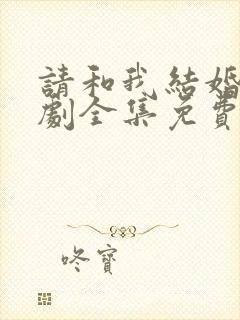 請和我結婚
劇全集免費
咚寶